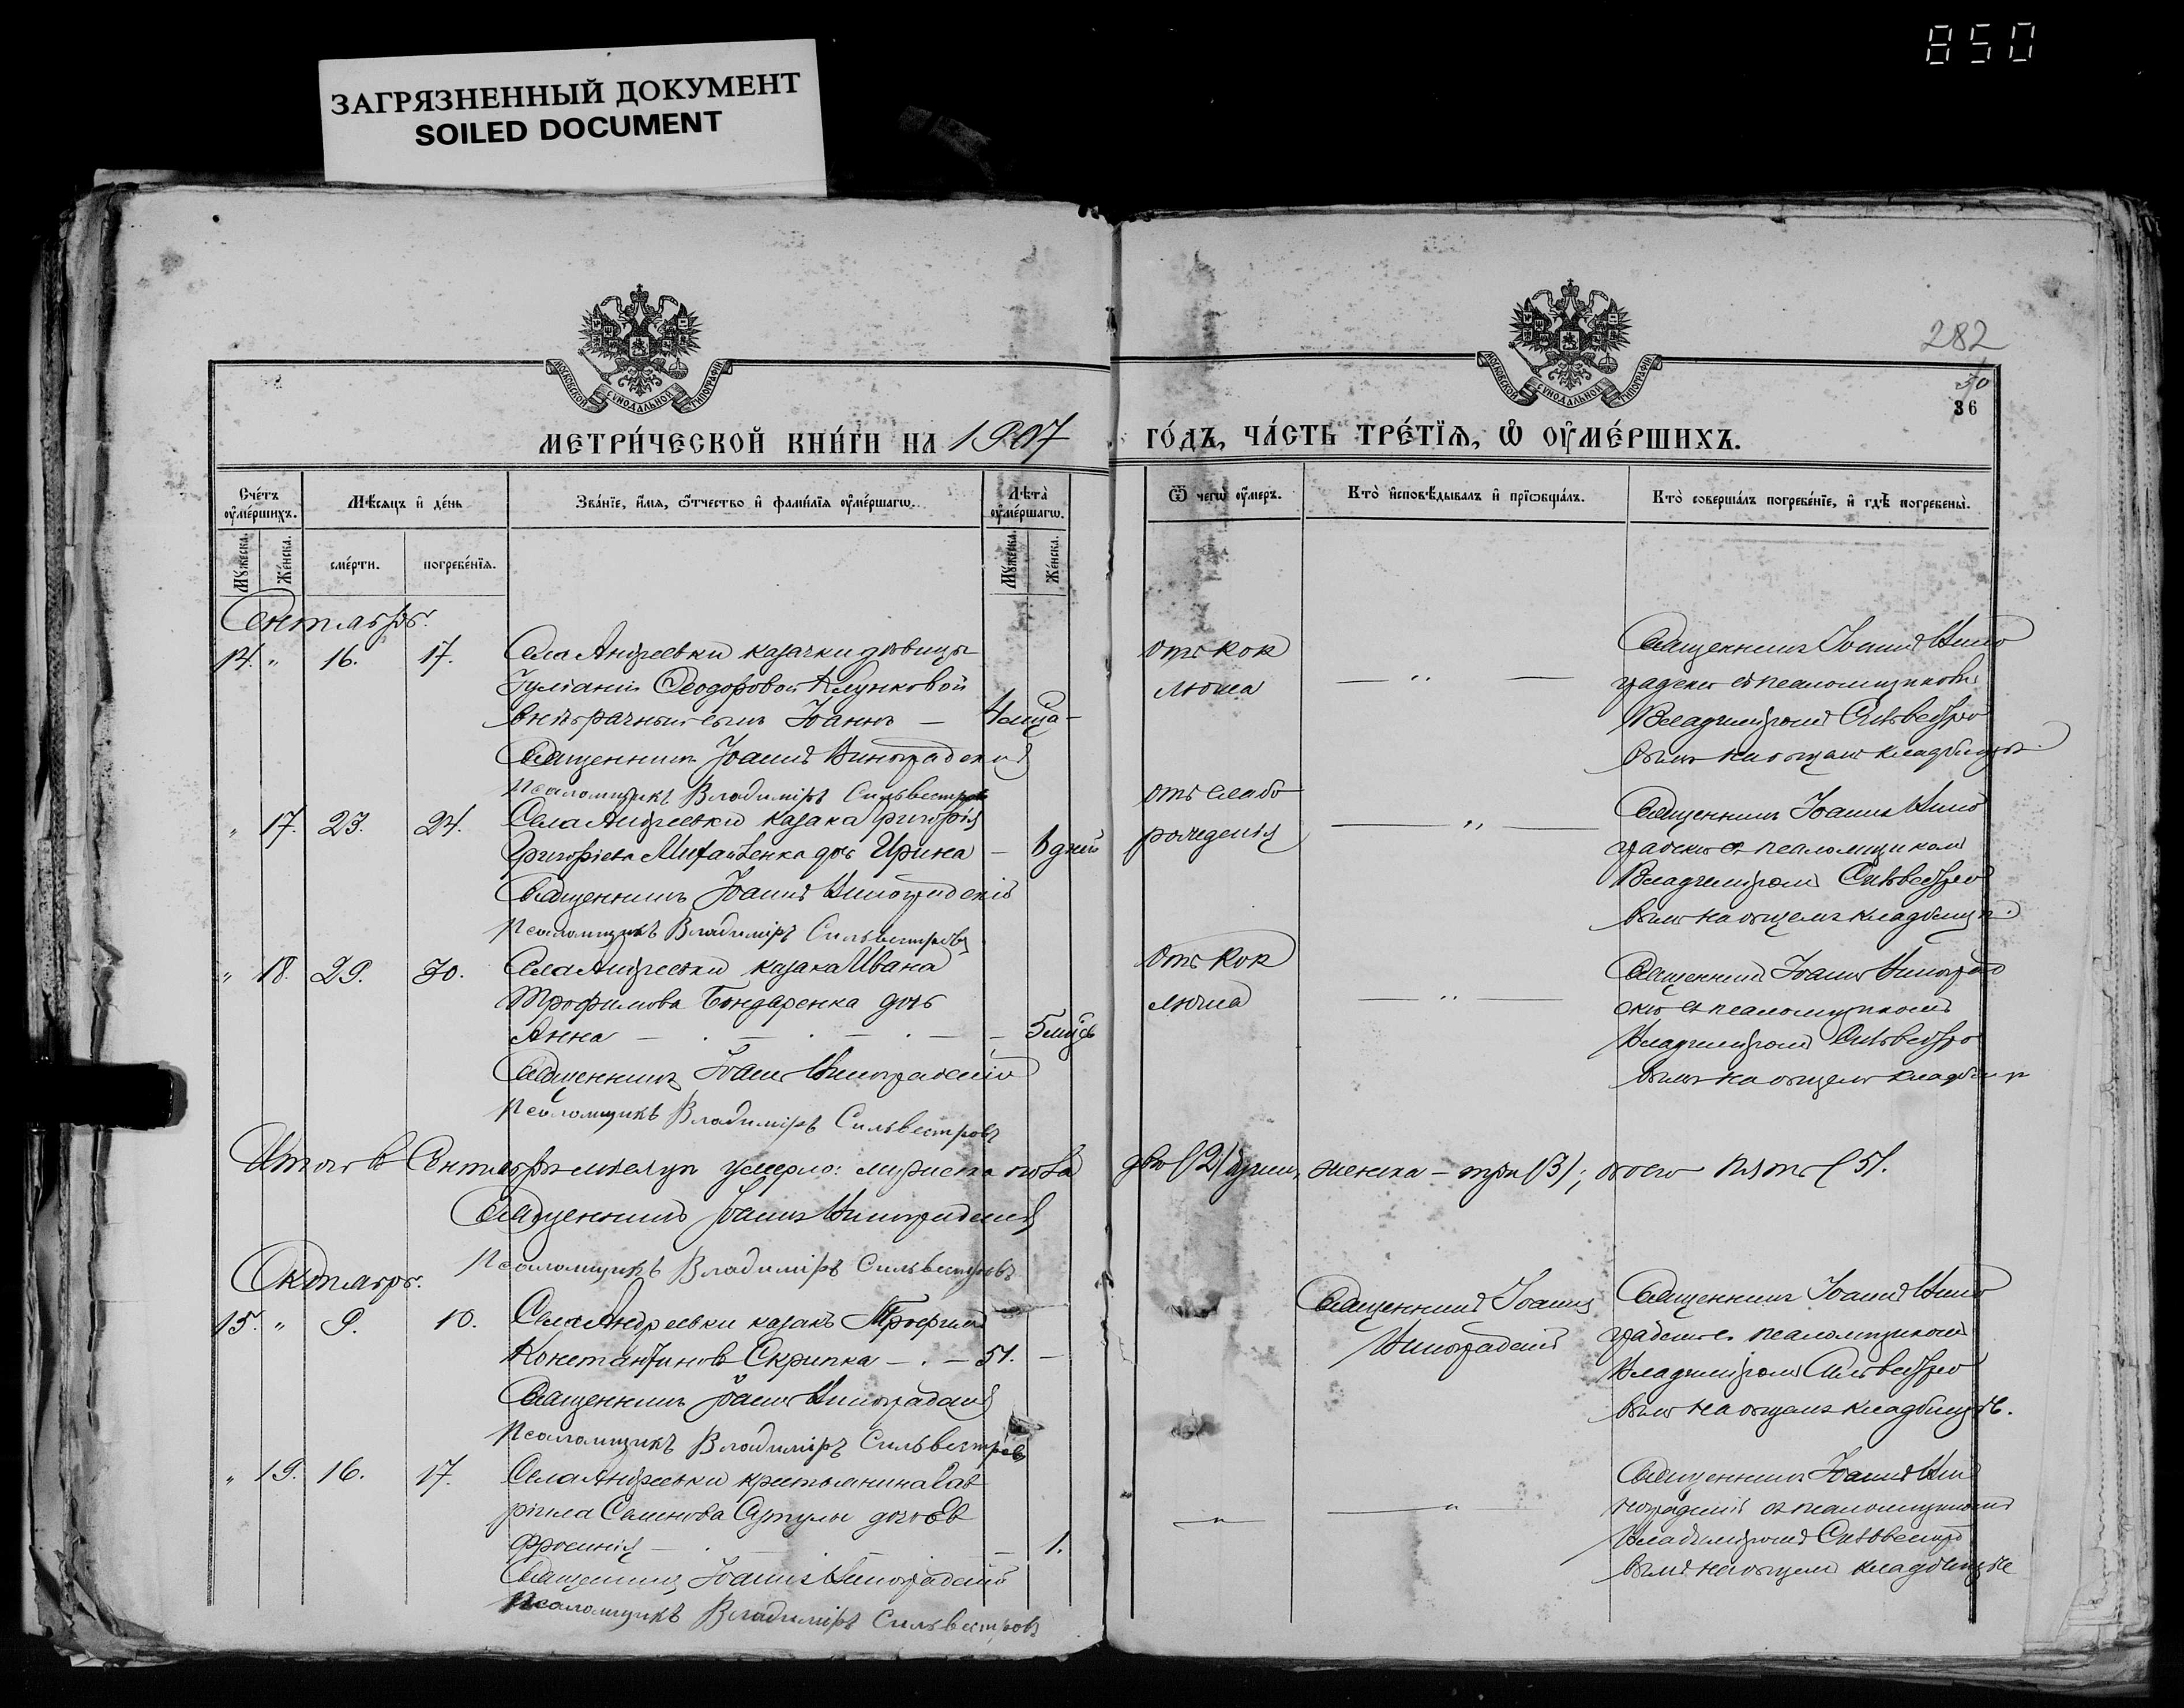 850
ЗАГРЯЗНЕННЫЙ ДОКУМЕНТ
SOILED DOCUMENT
282
30
36
МОСКОВСКОЙ СѴНОДАЛЬНОЙ ТИПОГРАФІИ
МОСКОВСКОЙ СѴНОДАЛЬНОЙ ТИПОГРАФІИ
МЕТРИ́ЧЕСКОЙ КНИ́ГИ НА 1907 ГО́ДЪ, ЧА́СТЬ ТРЕ́ТЇѦ, Ѡ҆ ОУ҆МЕ́РШИХЪ.
Сче́тъ оу҆ме́ршихъ.
Мѣ́сяцъ и҆ де́нь
Зва́нїе, и҆́мѧ, ѻ҆́тчество и҆ фами́лїѧ оу҆ме́ршагѡ.
Лѣта̀ оу҆ме́ршагѡ.
Ѿ чегѡ̀ оу҆́меръ.
Кто̀ и҆сповѣ́дывалъ и҆ прїѡбща́лъ.
Кто̀ соверша́лъ погребе́нїе, и҆ гдѣ̀ погребены̀.
Му́жеска.
Же́нска.
сме́рти.
погребе́нїѧ.
Му́жеска.
Же́нска.
Сентябрь.
14. " 16. 17. Села Андреевки казачки дѣвицы
Іуліаніи Ѳеодоровой Клунковой
внѣбрачный сынъ Іоаннъ — 4 мца —
Священникъ Іоаннъ Виноградскій
Псаломщикъ Владиміръ Сильвестровъ
отъ кок
люша
— " —
Священникъ Іоаннъ Вино
градскій съ псаломщикомъ
Владиміромъ Сильвестро
вымъ на общемъ кладбищѣ.
" 17. 23. 24. Села Андреевки казака Григорія
Григоріева Михайленка дочь Ирина — 8 дней
Священникъ Іоаннъ Виноградскій
Псаломщикъ Владиміръ Сильвестровъ
отъ слабо
рожденія
— " —
Священникъ Іоаннъ Вино
градскій съ псаломщикомъ
Владиміромъ Сильвестро
вымъ на общемъ кладбищѣ.
" 18. 29. 30. Села Андреевки казака Ивана
Трофимова Бондаренка дочь
Анна — . — . — . — — 5 мцсь
Священникъ Іоаннъ Виноградскій
Псаломщикъ Владиміръ Сильвестровъ
Отъ кок
люша
— " —
Священникъ Іоаннъ Виноград
скій съ псаломщикомъ
Владиміромъ Сильвестро
вымъ на общемъ кладбищѣ
Итого въ Сентябрѣ мѣсяцѣ умерло: мужеска пола двѣ (2) души, женска — три (3); всего пять (5).
Священникъ Іоаннъ Виноградскій
Псаломщикъ Владиміръ Сильвестровъ
Октябрь.
15. " 9. 10. Села Андреевки казакъ Трофимъ
Константиновъ Скрипка — . — 51. —
Священникъ Іоаннъ Виноградскій
Псаломщикъ Владиміръ Сильвестровъ
Священникъ Іоаннъ
Виноградскій
Священникъ Іоаннъ Вино
градскій съ псаломщикомъ
Владиміромъ Сильвестро
вымъ на общемъ кладбищѣ.
" 19. 16. 17. Села Андреевки крестьянина Гав
ріила Семенова дочь Ев
фросинія — . — — 1.
Священникъ Іоаннъ Виноградскій
Псаломщикъ Владиміръ Сильвестровъ
— " —
— " —
Священникъ Іоаннъ Ви
ноградскій съ псаломщикомъ
Владиміромъ Сильвестро
вымъ на общемъ кладбищѣ